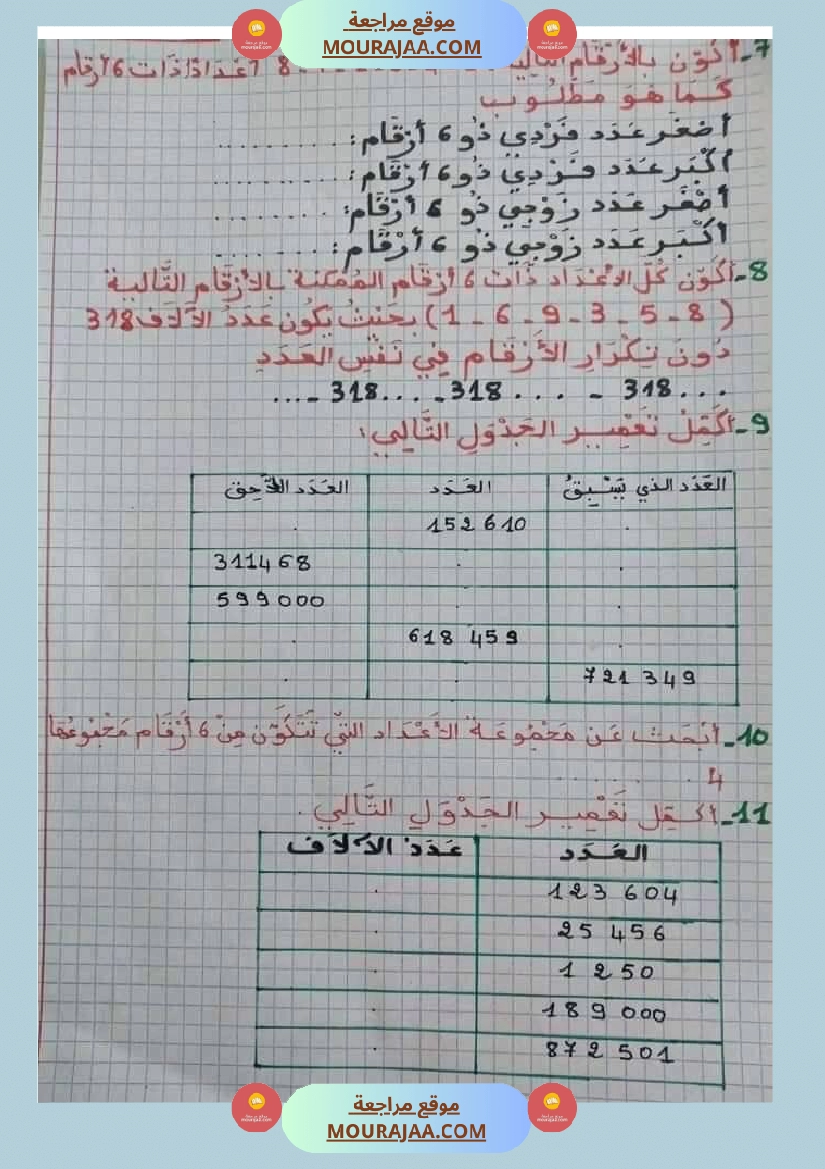 موقع مراجعة
MOURAJAA.COM
7-أكوّن بالأرقام التالية 8 أعْدَادًا ذَات 6 أرقام
كَمَا هُوَ مَطْلُوب
أصْغَر عَدَد فَرْدِي ذُو 6 أرْقَام: . . . . . . . . . .
أكْبَر عَدَد فَرْدِي ذُو 6 أرْقَام: . . . . . . . . . .
أصْغَر عَدَد زَوْجِي ذُو 6 أرْقَام: . . . . . . . .
أكْبَر عَدَد زَوْجِي ذُو 6 أرْقَام: . . . . . . . .
8-أكَوّن كُل الأعْدَاد ذَات 6 أرقَام المُمْكنة بالأرْقَام التَّالية
( 8 - 5 - 3 - 9 - 6 - 1 ) بحَيْثُ يَكُون عَددُ الآلَاف 318
دُونَ تِكْرَارِ الأَرْقَام فِي نَفْسِ العَدَدِ
318 . . . - 318 . . . . - 318 . . . . - . . .
9-أكَمّلُ تَعْمِير الجَدْوَلِ التَّالِي:
العَدَد الذي يَسْبِقُ | العَدَد | العَدَد اللاَّحِق
. | 152 610 | .
. | . | 311468
. | . | 599000
. | 618 459 | .
721 349 | . | .
10-أبْحَث عَن مَجْمُوعَة الأعْدَاد التِّي تَتَكَوَّن مِنْ 6 أرْقَام مَجْمُوعُهَا
4 . . . . . . .
11-أكمّل تَعْمِير الجَدْوَلِ التَّالِي .
العَدَد | عَدَدُ الآلَاف
123 604 | .
25 456 | .
1 250 | .
189 000 | .
872 501 | .
موقع مراجعة
MOURAJAA.COM